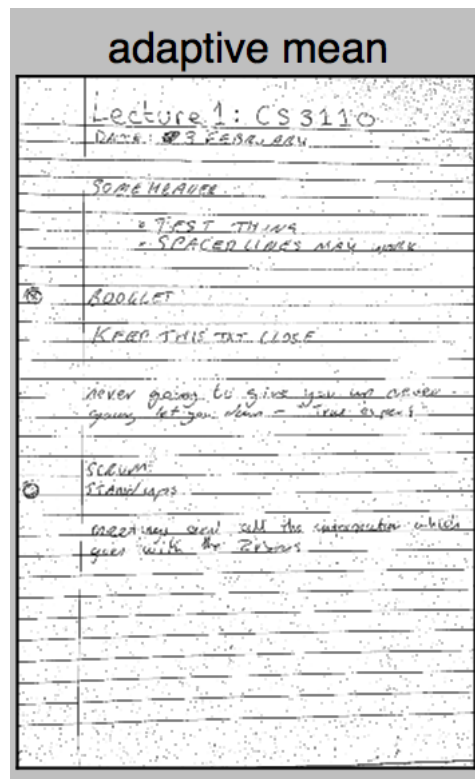 adaptive mean
Lecture 1: CS3110
DATE: 3 FEBRUARY
SOME HEADER
• TEST THING
• SPACED LINES MAY WORK
BOOKLET
KEEP THIS TXT CLOSE
never going to give you up never
going let you down - True expers
SCRUM
STANDUPS
all the information which
goes with the